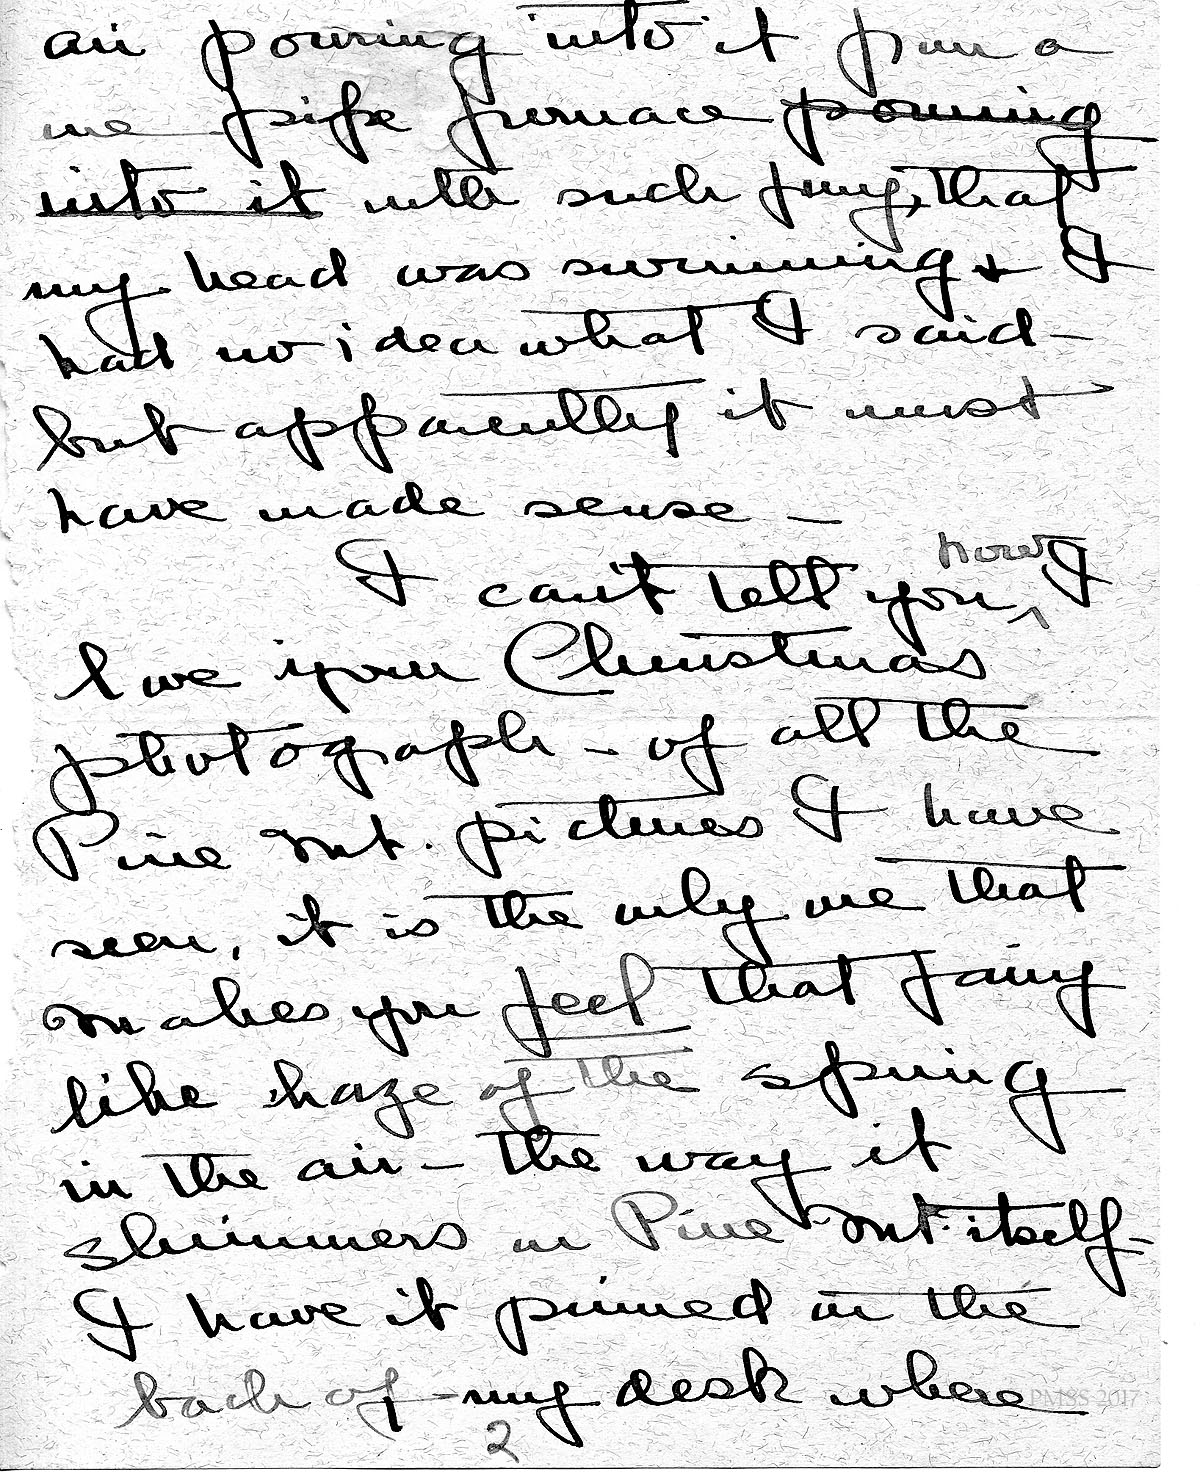 air pouring into it from a
one pipe furnace pouring
into it with such fury, that
my head was swimming & I
had no idea what I said -
but apparently it must
have made sense -
I can't tell you, how I
love your Christmas
photograph - of all the
Pine Mt. pictures I have
seen, it is the only one that
makes you feel that fairy
like haze of the spring
in the air - the way it
shimmers on Pine Mt. itself -
I have it pinned on the
back of my desk where
PMSS 2017
2